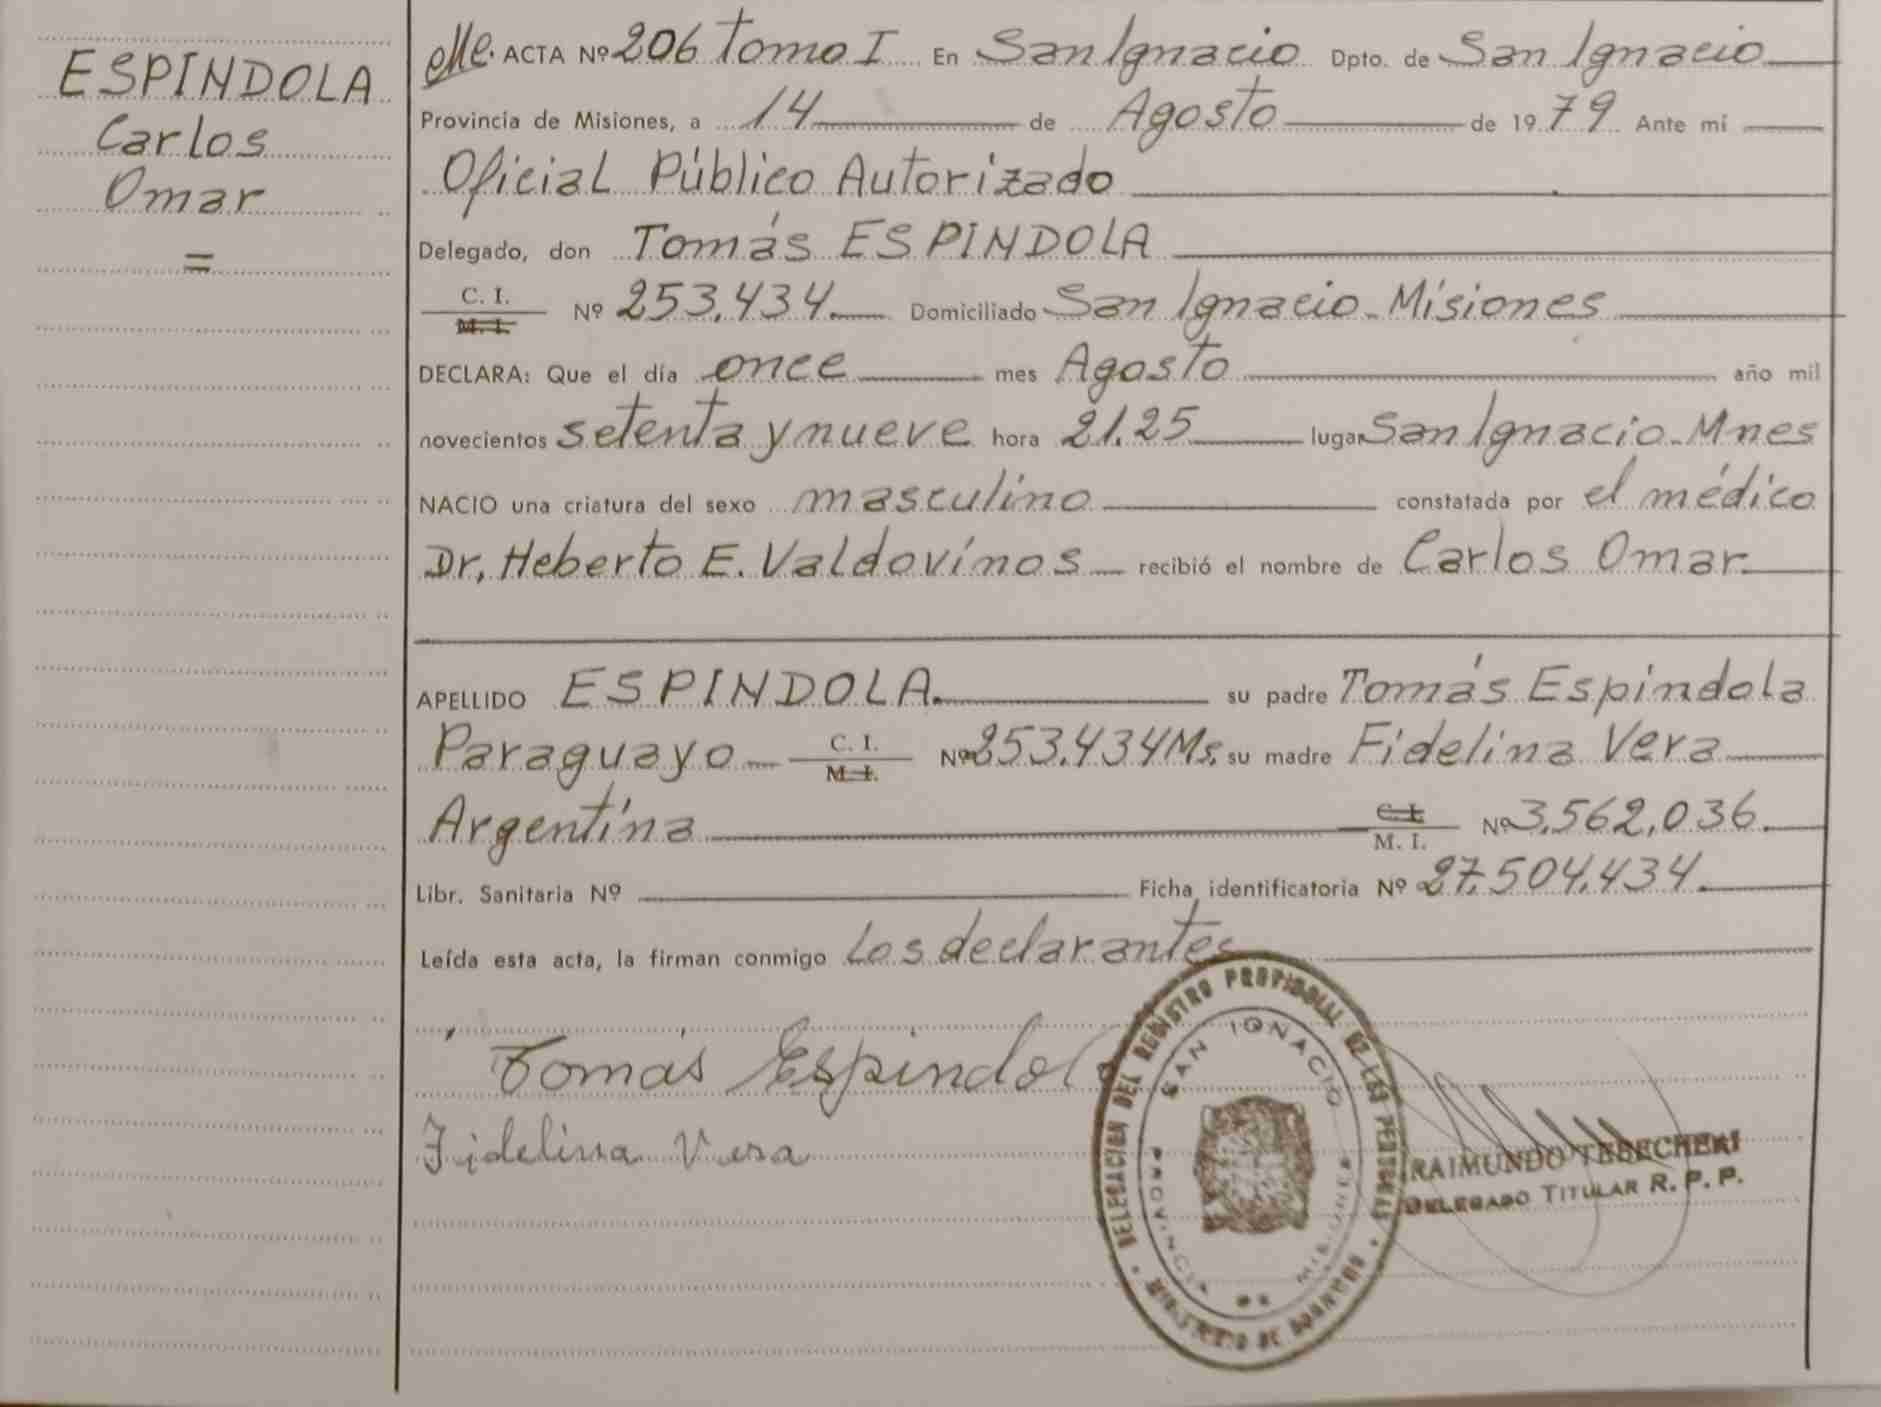 ESPINDOLA
Carlos
Omar
=
ACTA Nº 206 tomo I En San Ignacio Dpto. de San Ignacio
Provincia de Misiones, a 14 de Agosto de 1979 Ante mí
Oficial Público Autorizado
Delegado, don Tomás ESPINDOLA
C. I.
M. I. Nº 253.434. Domiciliado San Ignacio-Misiones
DECLARA: Que el día once mes Agosto año mil
novecientos setenta y nueve hora 21.25 lugar San Ignacio-Mnes
NACIO una criatura del sexo masculino constatada por el médico
Dr. Heberto E. Valdovinos recibió el nombre de Carlos Omar.
APELLIDO ESPINDOLA. su padre Tomás Espindola
Paraguayo C. I.
M. I. Nº 253.434 Ms. su madre Fidelina Vera
Argentina C. I.
M. I. Nº 3.562.036.
Libr. Sanitaria Nº Ficha identificatoria Nº 27.504.434.
Leída esta acta, la firman conmigo Los declarantes
Tomás Espindola
Fidelina Vera
DELEGACION DEL REGISTRO PROVINCIAL DE LAS PERSONAS
SAN IGNACIO
PROVINCIA DE MISIONES
MINISTERIO DE GOBIERNO
RAIMUNDO
DELEGADO TITULAR R. P. P.